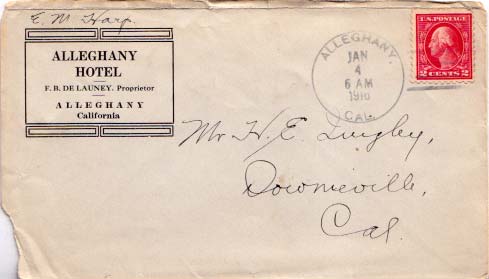 E. M. Harp.
ALLEGHANY
HOTEL
F. B. DE LAUNEY, Proprietor
ALLEGHANY
California
ALLEGHANY.
JAN
4
6 AM
1916
CAL.
U.S. POSTAGE
2 CENTS 2
Mr H. E. Lingley,
Downieville,
Cal.